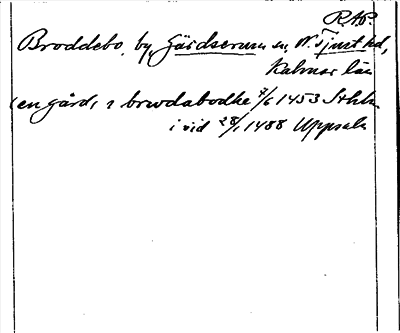 RAP.
Broddebo, by, Gärdserums sn, N. Tjust hd,
Kalmar län
(en gård) i browdabodhe 7/6 1453 Sthlm
i vid 28/1 1488 Uppsala